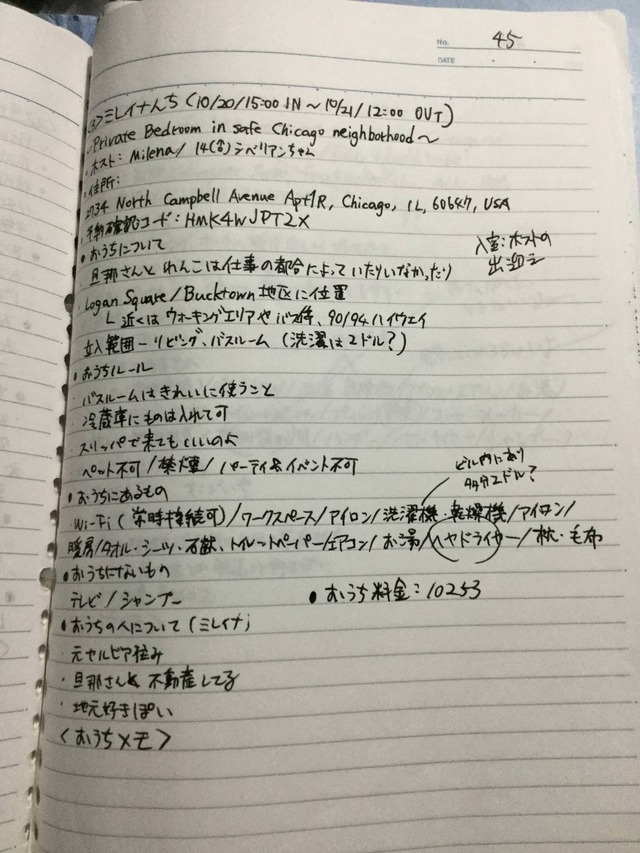 No. 45
DATE
<3>ミレイナんち (10/20/15:00 IN ~ 10/21/12:00 OUT)
Private Bedroom in safe Chicago neighborhood~
・ホスト: Milena/
・住所:
2734 North Campbell Avenue Apt1R, Chicago, IL, 60647, USA
・予約確認コード: HMK4WJPT2X
入室:ホストの
出迎え
●おうちについて
・旦那さんと わんこは仕事の都合によっていたりいなかったり
・Logan Square/Bucktown 地区に位置
└ 近くは ウォーキングエリアや バス停、90/94ハイウェイ
・立入範囲ーリビング、バスルーム (洗濯は2ドル?)
●おうちルール
・バスルームはきれいに使うこと
・冷蔵庫にものは入れて可
・スリッパで来てもいいのよ
・ペット不可/禁煙/パーティ&イベント不可
ビル内にあり
多分2ドル?
●おうちにあるもの
Wi-Fi (常時接続可)/ワークスペース/アイロン/洗濯機・乾燥機/アイロン/
暖房/タオル・シーツ・石鹸、トイレットペーパー/エアコン/お湯/ヘヤドライヤー/枕・毛布
●おうちにないもの
テレビ/シャンプー
●おうち料金:10253
●おうちの人について(ミレイナ)
・元セルビア住み
・旦那さんと 不動産してる
・地元好きぽい
<おうちメモ>